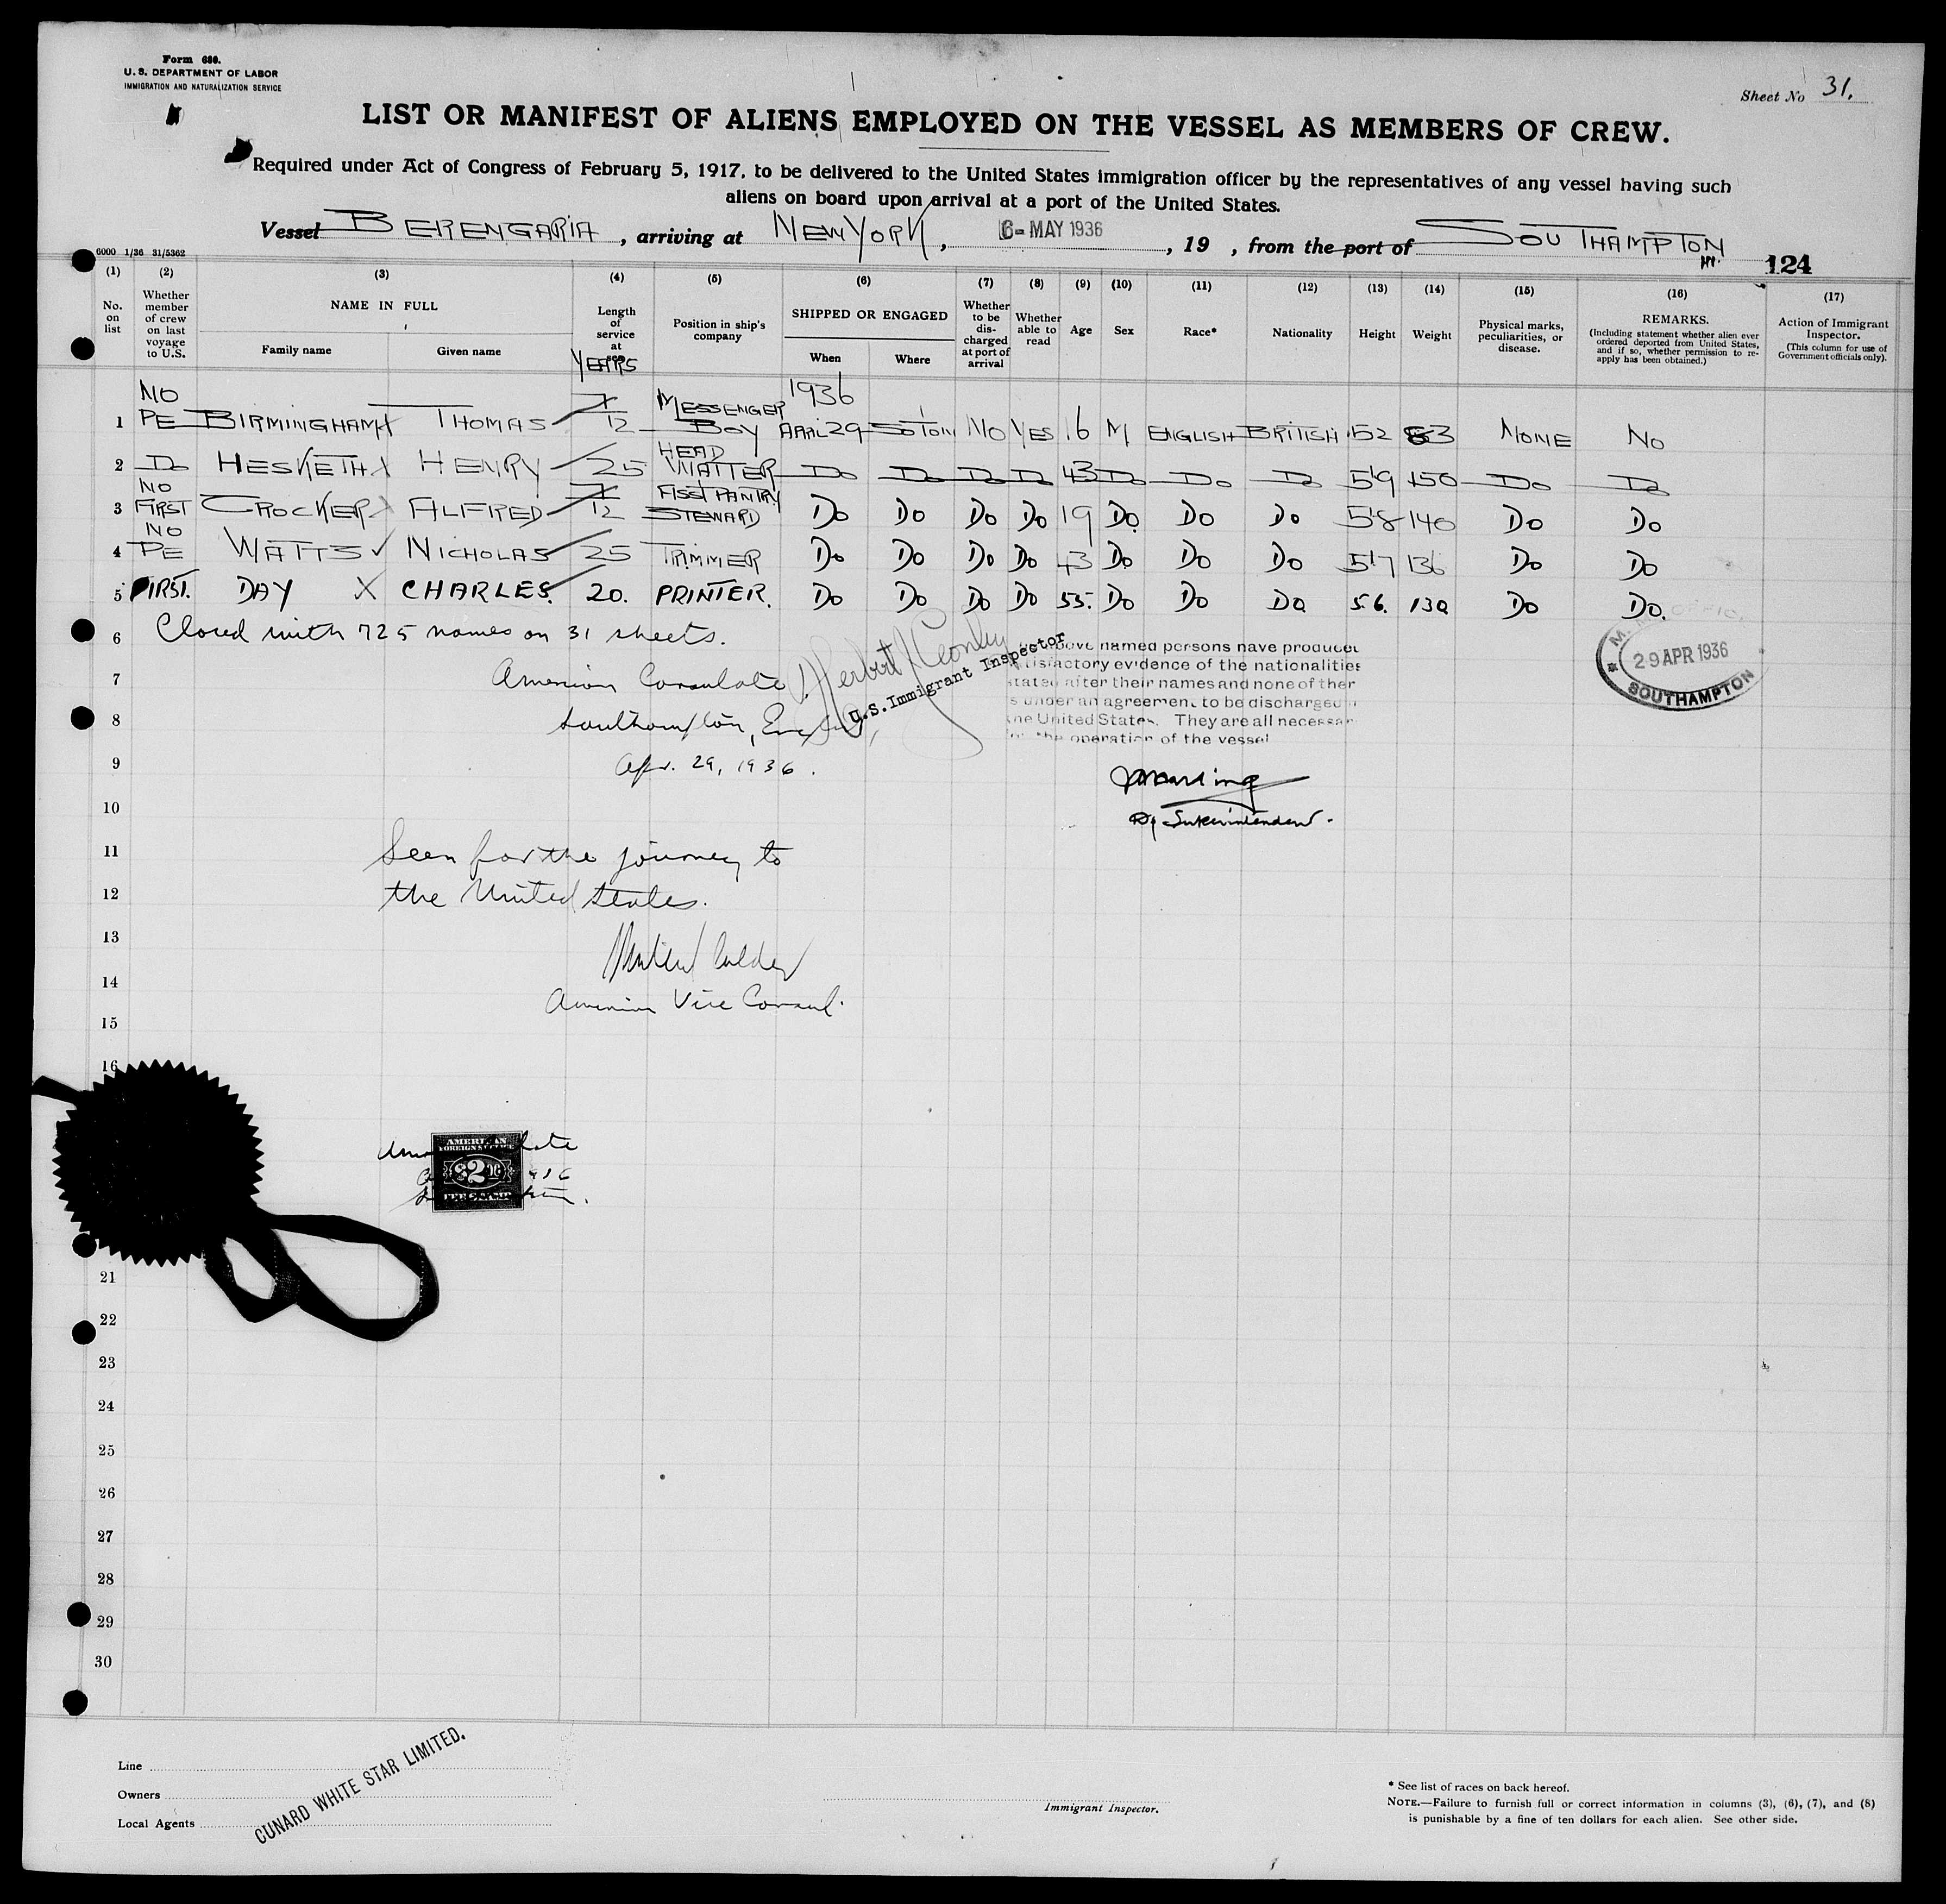 Form 680.
U. S. DEPARTMENT OF LABOR
IMMIGRATION AND NATURALIZATION SERVICE
Sheet No 31.
LIST OR MANIFEST OF ALIENS EMPLOYED ON THE VESSEL AS MEMBERS OF CREW.
Required under Act of Congress of February 5, 1917, to be delivered to the United States immigration officer by the representatives of any vessel having such
aliens on board upon arrival at a port of the United States.
Vessel BERENGARIA, arriving at NEW YORK, 6- MAY 1936, 19 , from the port of SOUTHAMPTON
6000 1/36 31/5362
124
(1) (2) (3) (4) (5) (6) (7) (8) (9) (10) (11) (12) (13) (14) (15) (16) (17)
No. on list
Whether member of crew on last voyage to U.S.
NAME IN FULL
Family name Given name
Length of service at sea
YEARS
Position in ship's company
SHIPPED OR ENGAGED
When Where
Whether to be discharged at port of arrival
Whether able to read
Age
Sex
Race*
Nationality
Height
Weight
Physical marks, peculiarities, or disease.
REMARKS.
(Including statement whether alien ever ordered deported from United States, and if so, whether permission to re-apply has been obtained.)
Action of Immigrant Inspector.
(This column for use of Government officials only).
NO MESSENGER 1936
1 PE BIRMINGHAM X THOMAS 7/12 BOY APRIL 29 SOTON NO YES 16 M ENGLISH BRITISH 52 83 NONE NO
HEAD
2 Do HESKETH X HENRY 25 WAITER Do Do Do Do 43 Do Do Do 5'9 150 Do Do
NO ASST PANTRY
3 FIRST CROCKER X ALFRED 7/12 STEWARD Do Do Do Do 19 Do Do Do 5'8 140 Do Do
NO
4 PE WATTS ✓ NICHOLAS 25 TRIMMER Do Do Do Do 43 Do Do Do 5'7 136 Do Do
5 FIRST. DAY X CHARLES. 20. PRINTER. Do Do Do Do 55. Do Do Do 5.6. 130 Do Do.
6 Closed with 725 names on 31 sheets.
7 American Consulate
8 Southampton, England,
9 Apr. 29, 1936.
U.S. Immigrant Inspector
above named persons have produced
satisfactory evidence of the nationalities
stated after their names and none of them
is under an agreement to be discharged in
the United States. They are all necessary
for the operation of the vessel
29 APR 1936
SOUTHAMPTON
Dy Superintendent.
10
11 Seen for the journey to
12 the United States.
13
14
American Vice Consul.
15
16
AMERICAN
FOREIGN SERVICE
$2.00
FEE STAMP
21
22
23
24
25
26
27
28
29
30
Line
Owners
Local Agents
CUNARD WHITE STAR LIMITED.
Immigrant Inspector.
* See list of races on back hereof.
NOTE.—Failure to furnish full or correct information in columns (3), (6), (7), and (8)
is punishable by a fine of ten dollars for each alien. See other side.